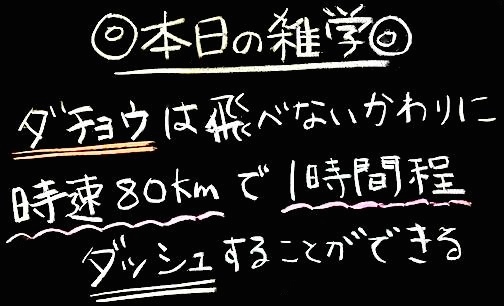 ◎本日の雑学◎
ダチョウは飛べないかわりに
時速80kmで1時間程
ダッシュすることができる